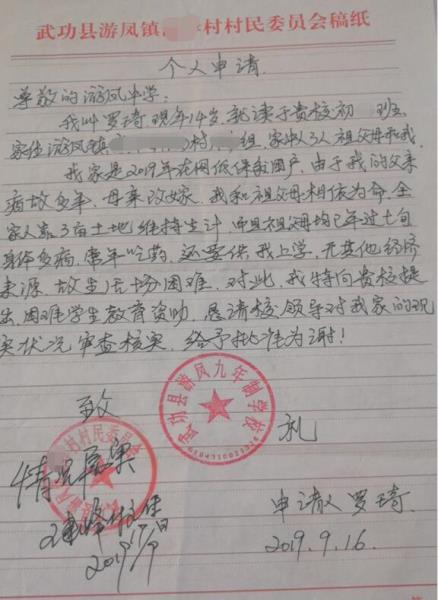 武功县游凤镇 村村民委员会稿纸
个人申请
尊敬的游凤中学:
我叫罗琦 现年14岁 就读于贵校初 班
家住游凤镇 村 组, 家中3人 祖父母和我.
我家是2019年在网低保贫困户, 由于我的父亲
病故多年, 母亲改嫁, 我和祖父母相依为命, 全
家人靠3亩土地维持生计, 而且祖父母均已年过七旬
身体多病, 常年吃药, 还要供我上学, 无其他经济
来源, 故生活场困难, 对此, 我特向贵校提
出, 困难学生教育资助, 恳请校领导对我家的现
实状况审查核实, 给予批准为谢!
致
礼
武功县游凤九年制学校
村民委员会
情况属实
2019 9
申请人 罗琦
2019.9.16.